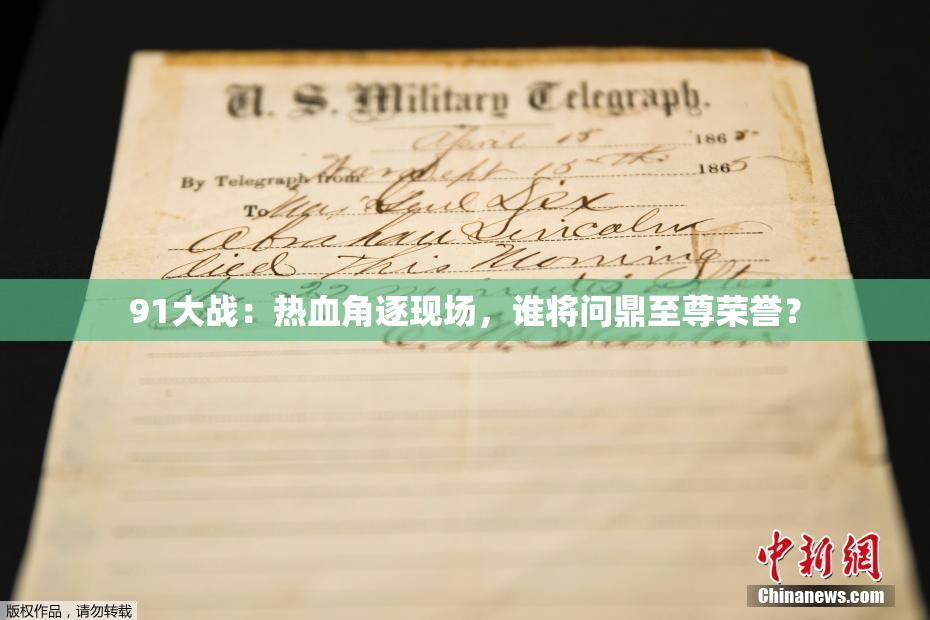 U. S. Military Telegraph.
April 15 1865
By Telegraph from War Dept 15th 1865
To Maj Genl Dix
Abraham Lincoln
died this Morning
at 22 minutes after
91大战：热血角逐现场，谁将问鼎至尊荣誉？
E. M. Stanton
中新网
Chinanews.com
版权作品，请勿转载